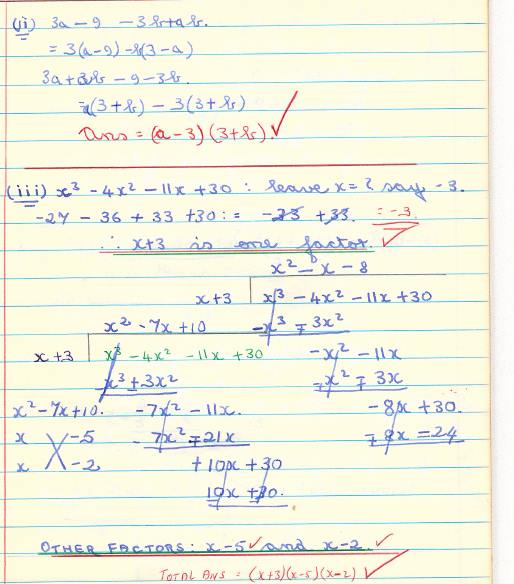 (ii) 3a - 9 - 3b + ab.
= 3(a-9) - b(3-a)
3a + 3b - 9 - 3b.
= a(3+b) - 3(3+b)
Ans = (a-3)(3+b). ✓
(iii) x³ - 4x² - 11x + 30 : leave x = ? say -3.
-27 - 36 + 33 + 30 : = -33 + 33. = -3.
∴ x+3 is one factor. ✓
x² - x - 8
x+3 x³ - 4x² - 11x + 30
-x³ ∓ 3x²
-x² - 11x
x² ∓ 3x
-8x + 30.
∓ 8x = 24
x² - 7x + 10
x+3 x³ - 4x² - 11x + 30
x³ + 3x²
-7x² - 11x.
- 7x² ∓ 21x
+10x + 30
10x + 30.
x² - 7x + 10.
x -5
x -2
OTHER FACTORS: x-5 ✓ and x-2. ✓
TOTAL ANS = (x+3)(x-5)(x-2) ✓